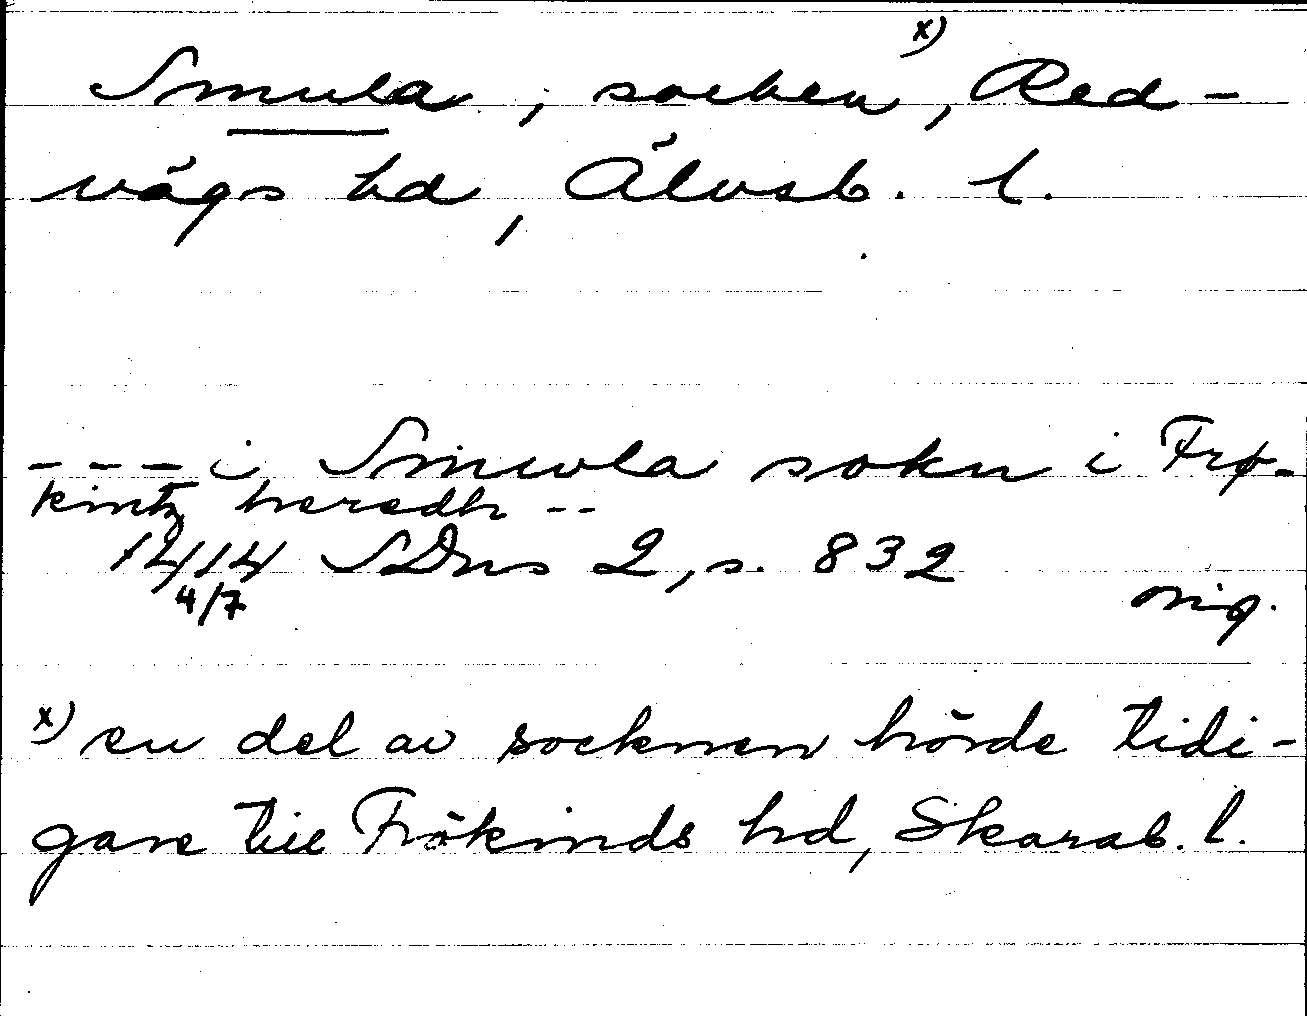 Smula, socken x), Red-
vägs hd, Älvsb. l.
--- i Smwla sokn i Frø-
kintz heredh --
1414 SDns 2, s. 832
4/7
orig.
x) en del av socknen hörde tidi-
gare till Frökinds hd, Skarab. l.